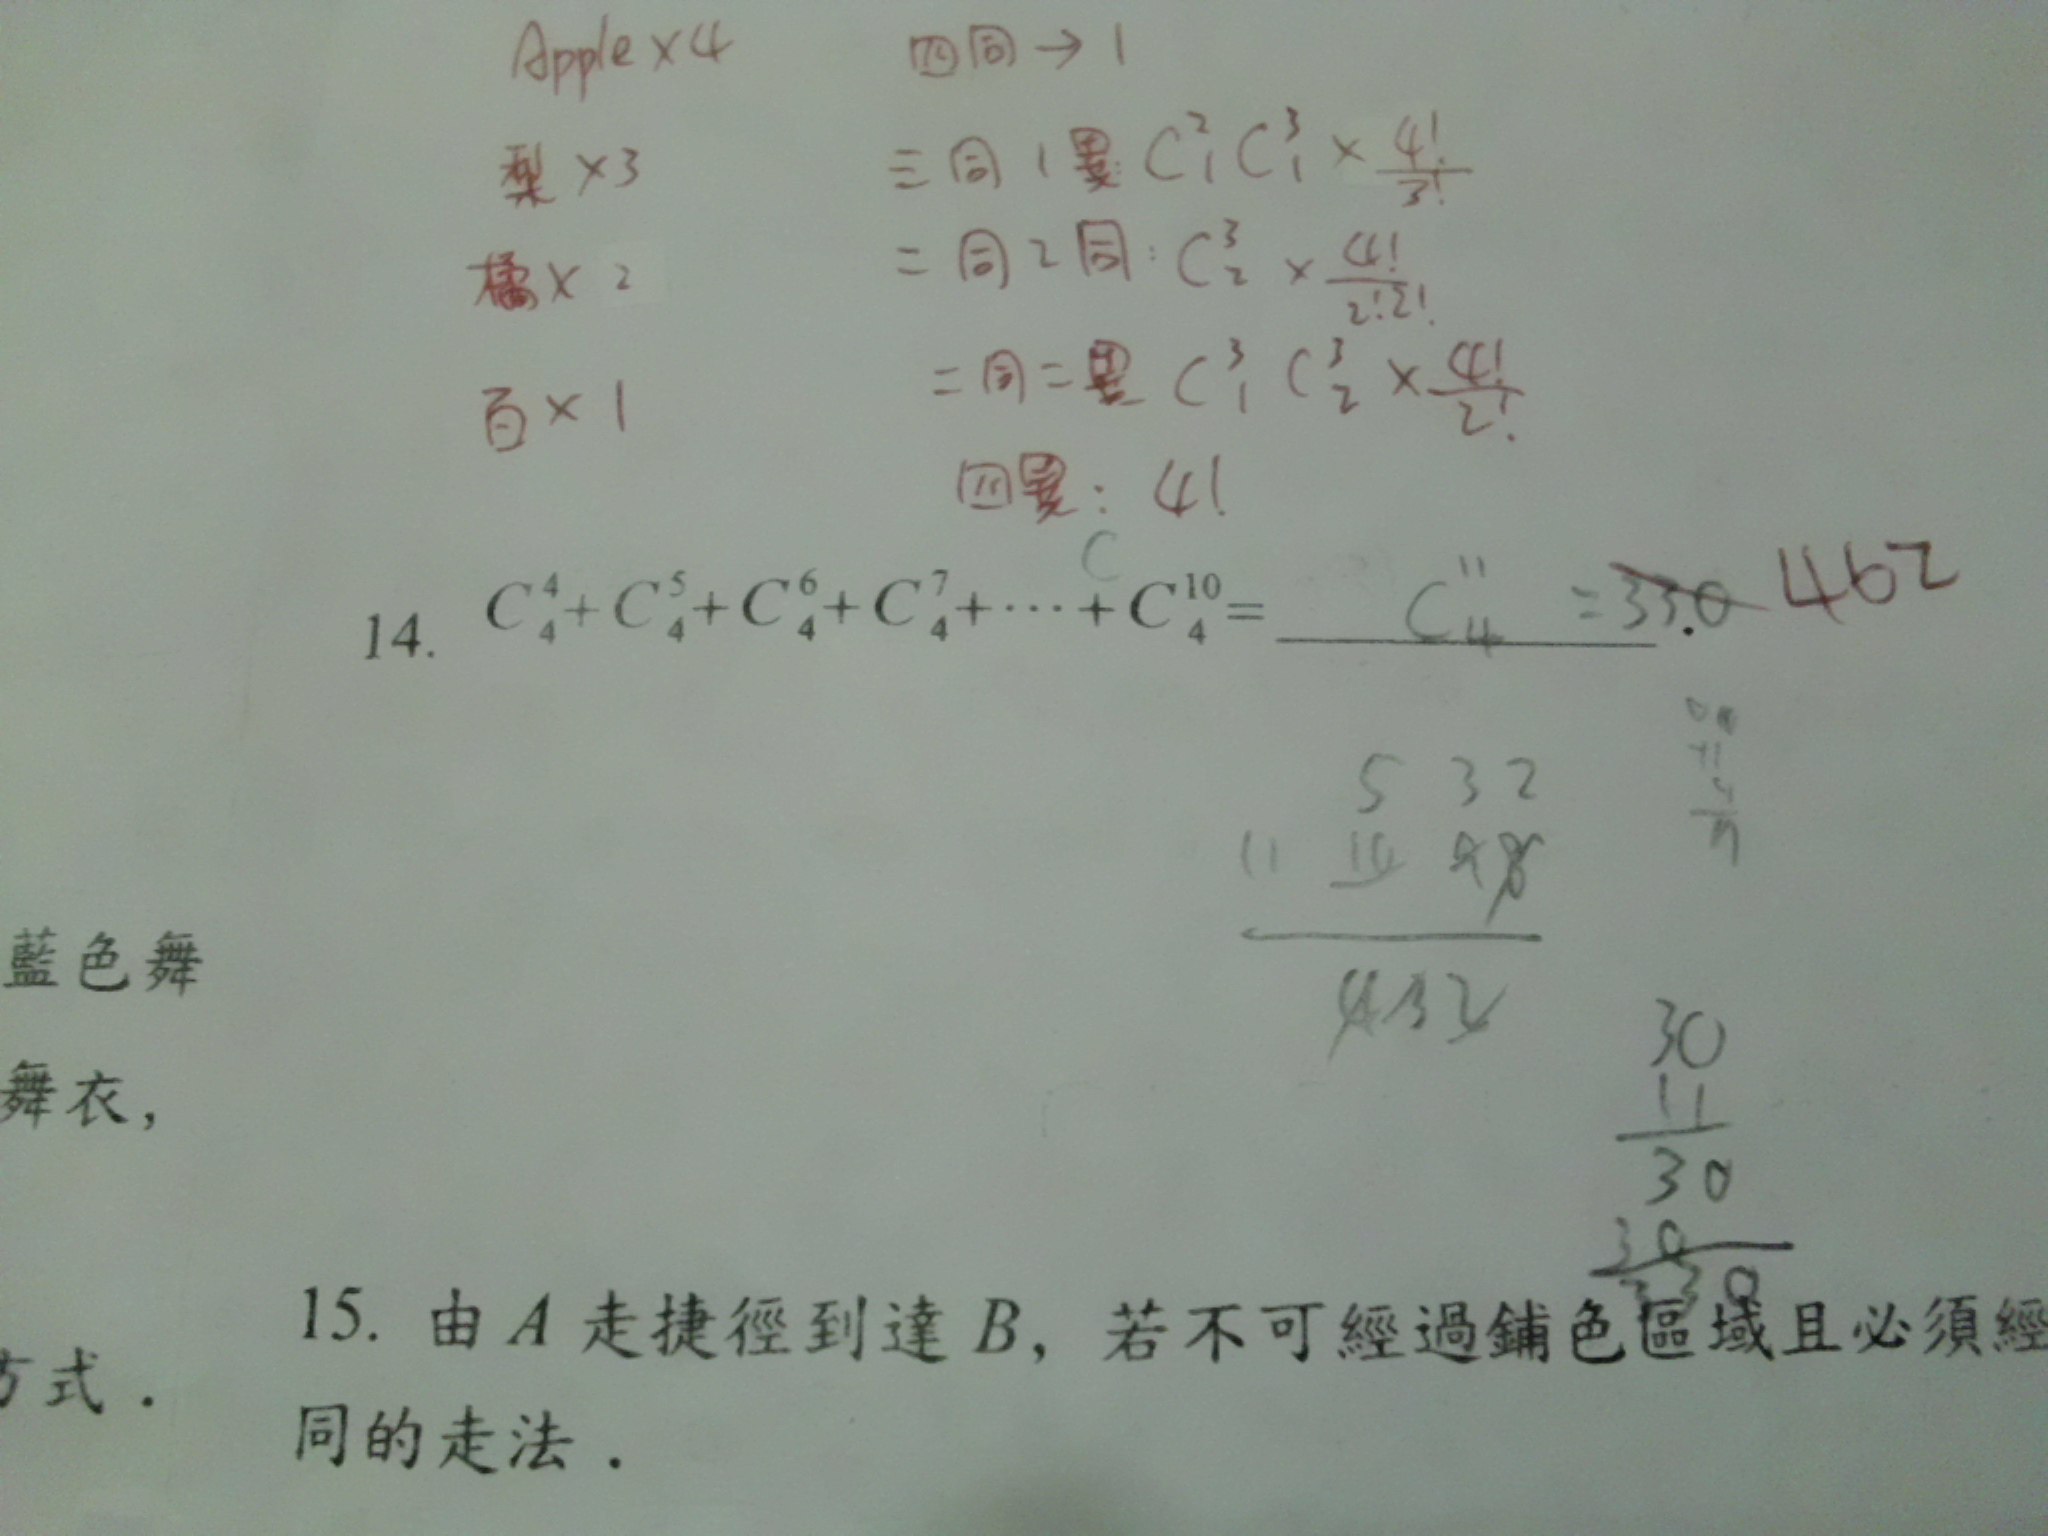 Apple×4 四同→1
梨×3 三同1異: C²₁C³₁×4!/3!
橘×2 二同2同: C³₂×4!/2!2!
百×1 二同二異 C³₁ C³₂×4!/2!
四異: 4!
C
14. C⁴₄+C⁵₄+C⁶₄+C⁷₄+⋯+C¹⁰₄= C¹¹₄ =330. 462
5 3 2
11 10 9 8
4 3 2
30
11
30
30
330
藍色舞
舞衣,
方式.
15. 由 A 走捷徑到達 B, 若不可經過鋪色區域且必須經
同的走法.